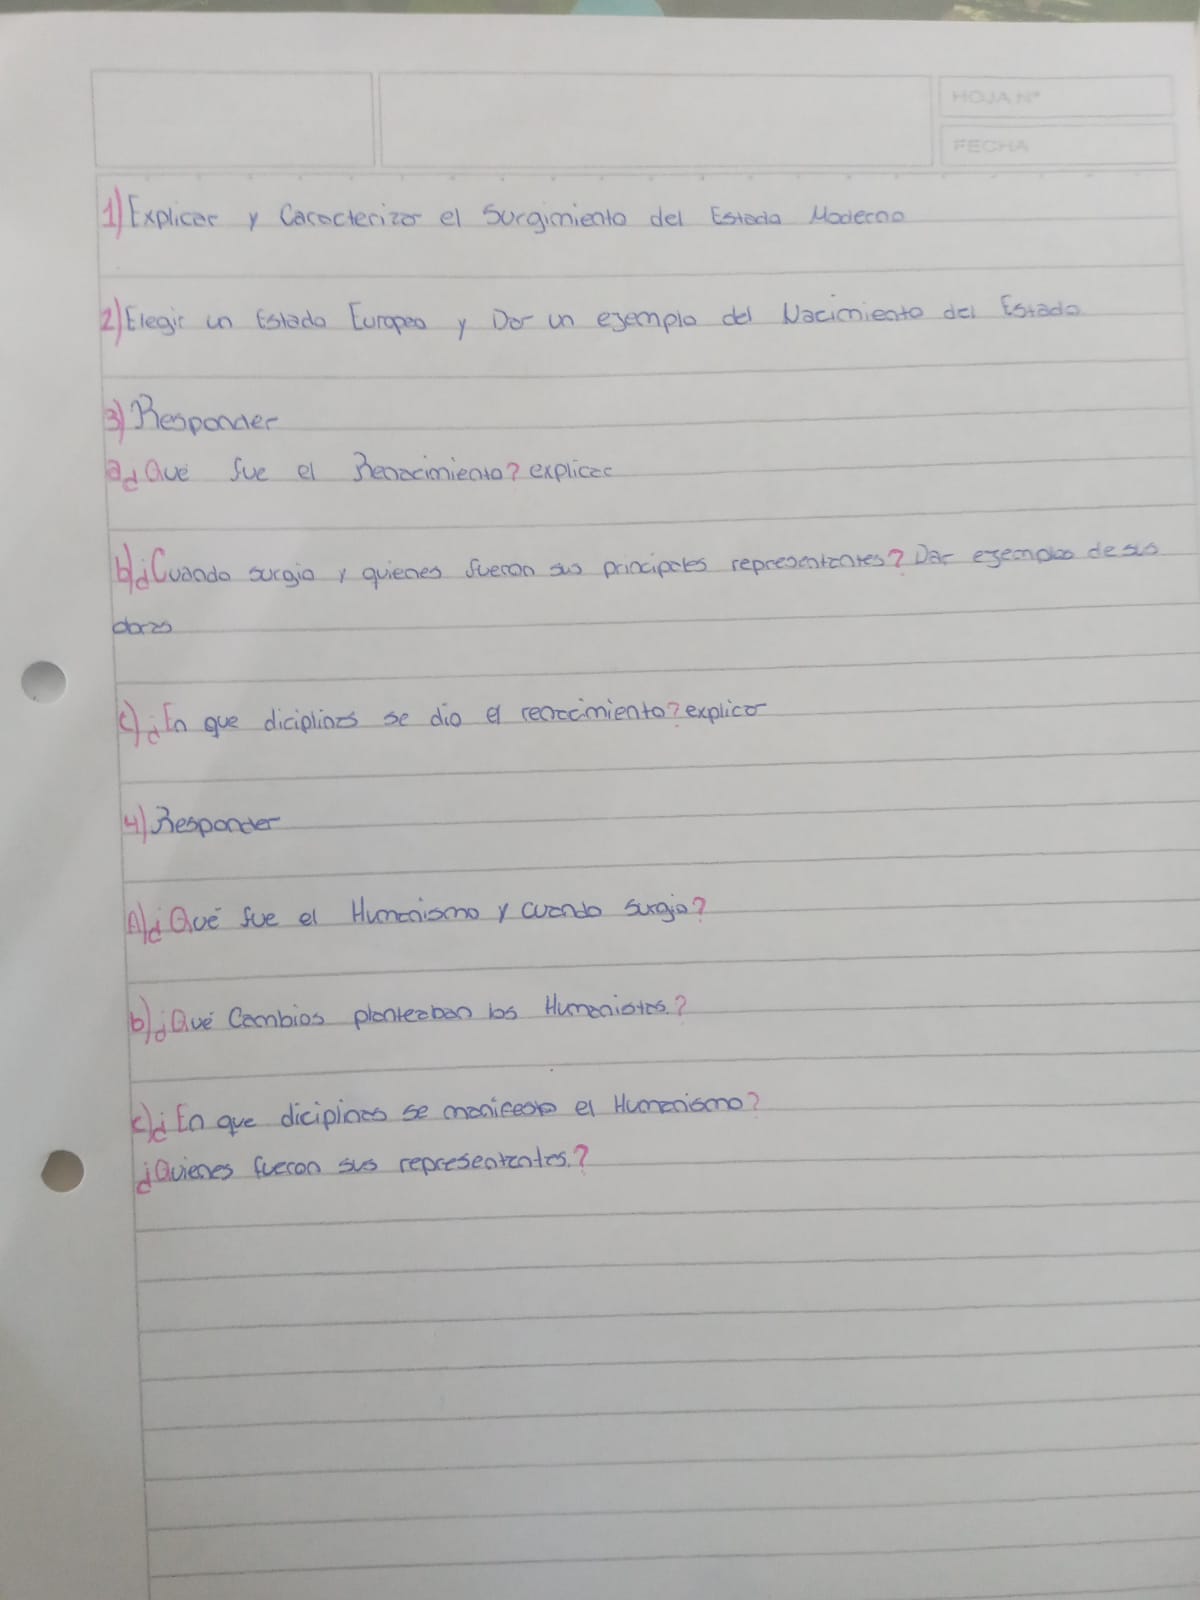 HOJA Nº
FECHA
1) Explicar y Caracterizar el Surgimiento del Estado Moderno
2) Elegir un Estado Europeo y Dar un ejemplo del Nacimiento del Estado
3) Responder
a¿Qué fue el Renacimiento? explicar
b)¿Cuando surgio y quienes fueron sus principales representantes? Dar ejemplos de sus
obras
c)¿En que diciplinas se dio el renacimiento? explicar
4) Responder
A)¿Qué fue el Humanismo y cuando surgio?
b)¿Qué Cambios planteaban los Humanistas?
c)¿En que diciplinas se manifesto el Humanismo?
¿Quienes fueron sus representantes?